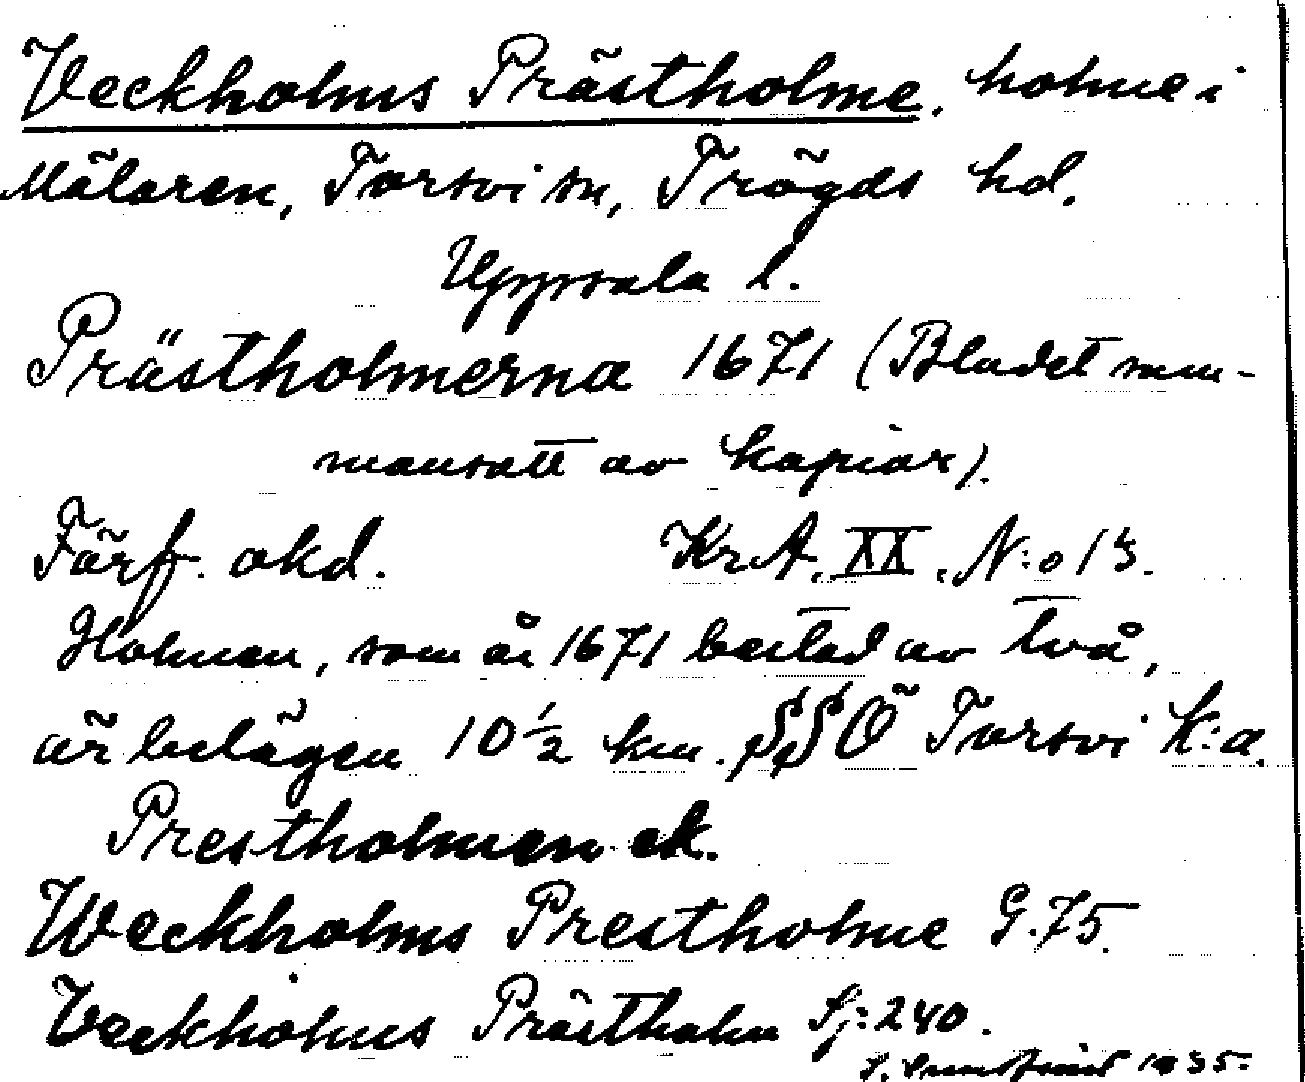 Veckholms Prästholme, holme i
Mälaren, Torsvi sn, Trögds hd.
Uppsala l.
Prästholmerna 1671 (Bladet sam-
mansatt av kopior).
Förf. okd. KrA. XX. N:o 13.
Holmen, som år 1671 bestod av två,
är belägen 10 1/2 km. SSÖ Torsvi k:a.
Prestholmen ek.
Weckholms Prestholme G.75.
Veckholms Prästholm Sj:240.
1935.